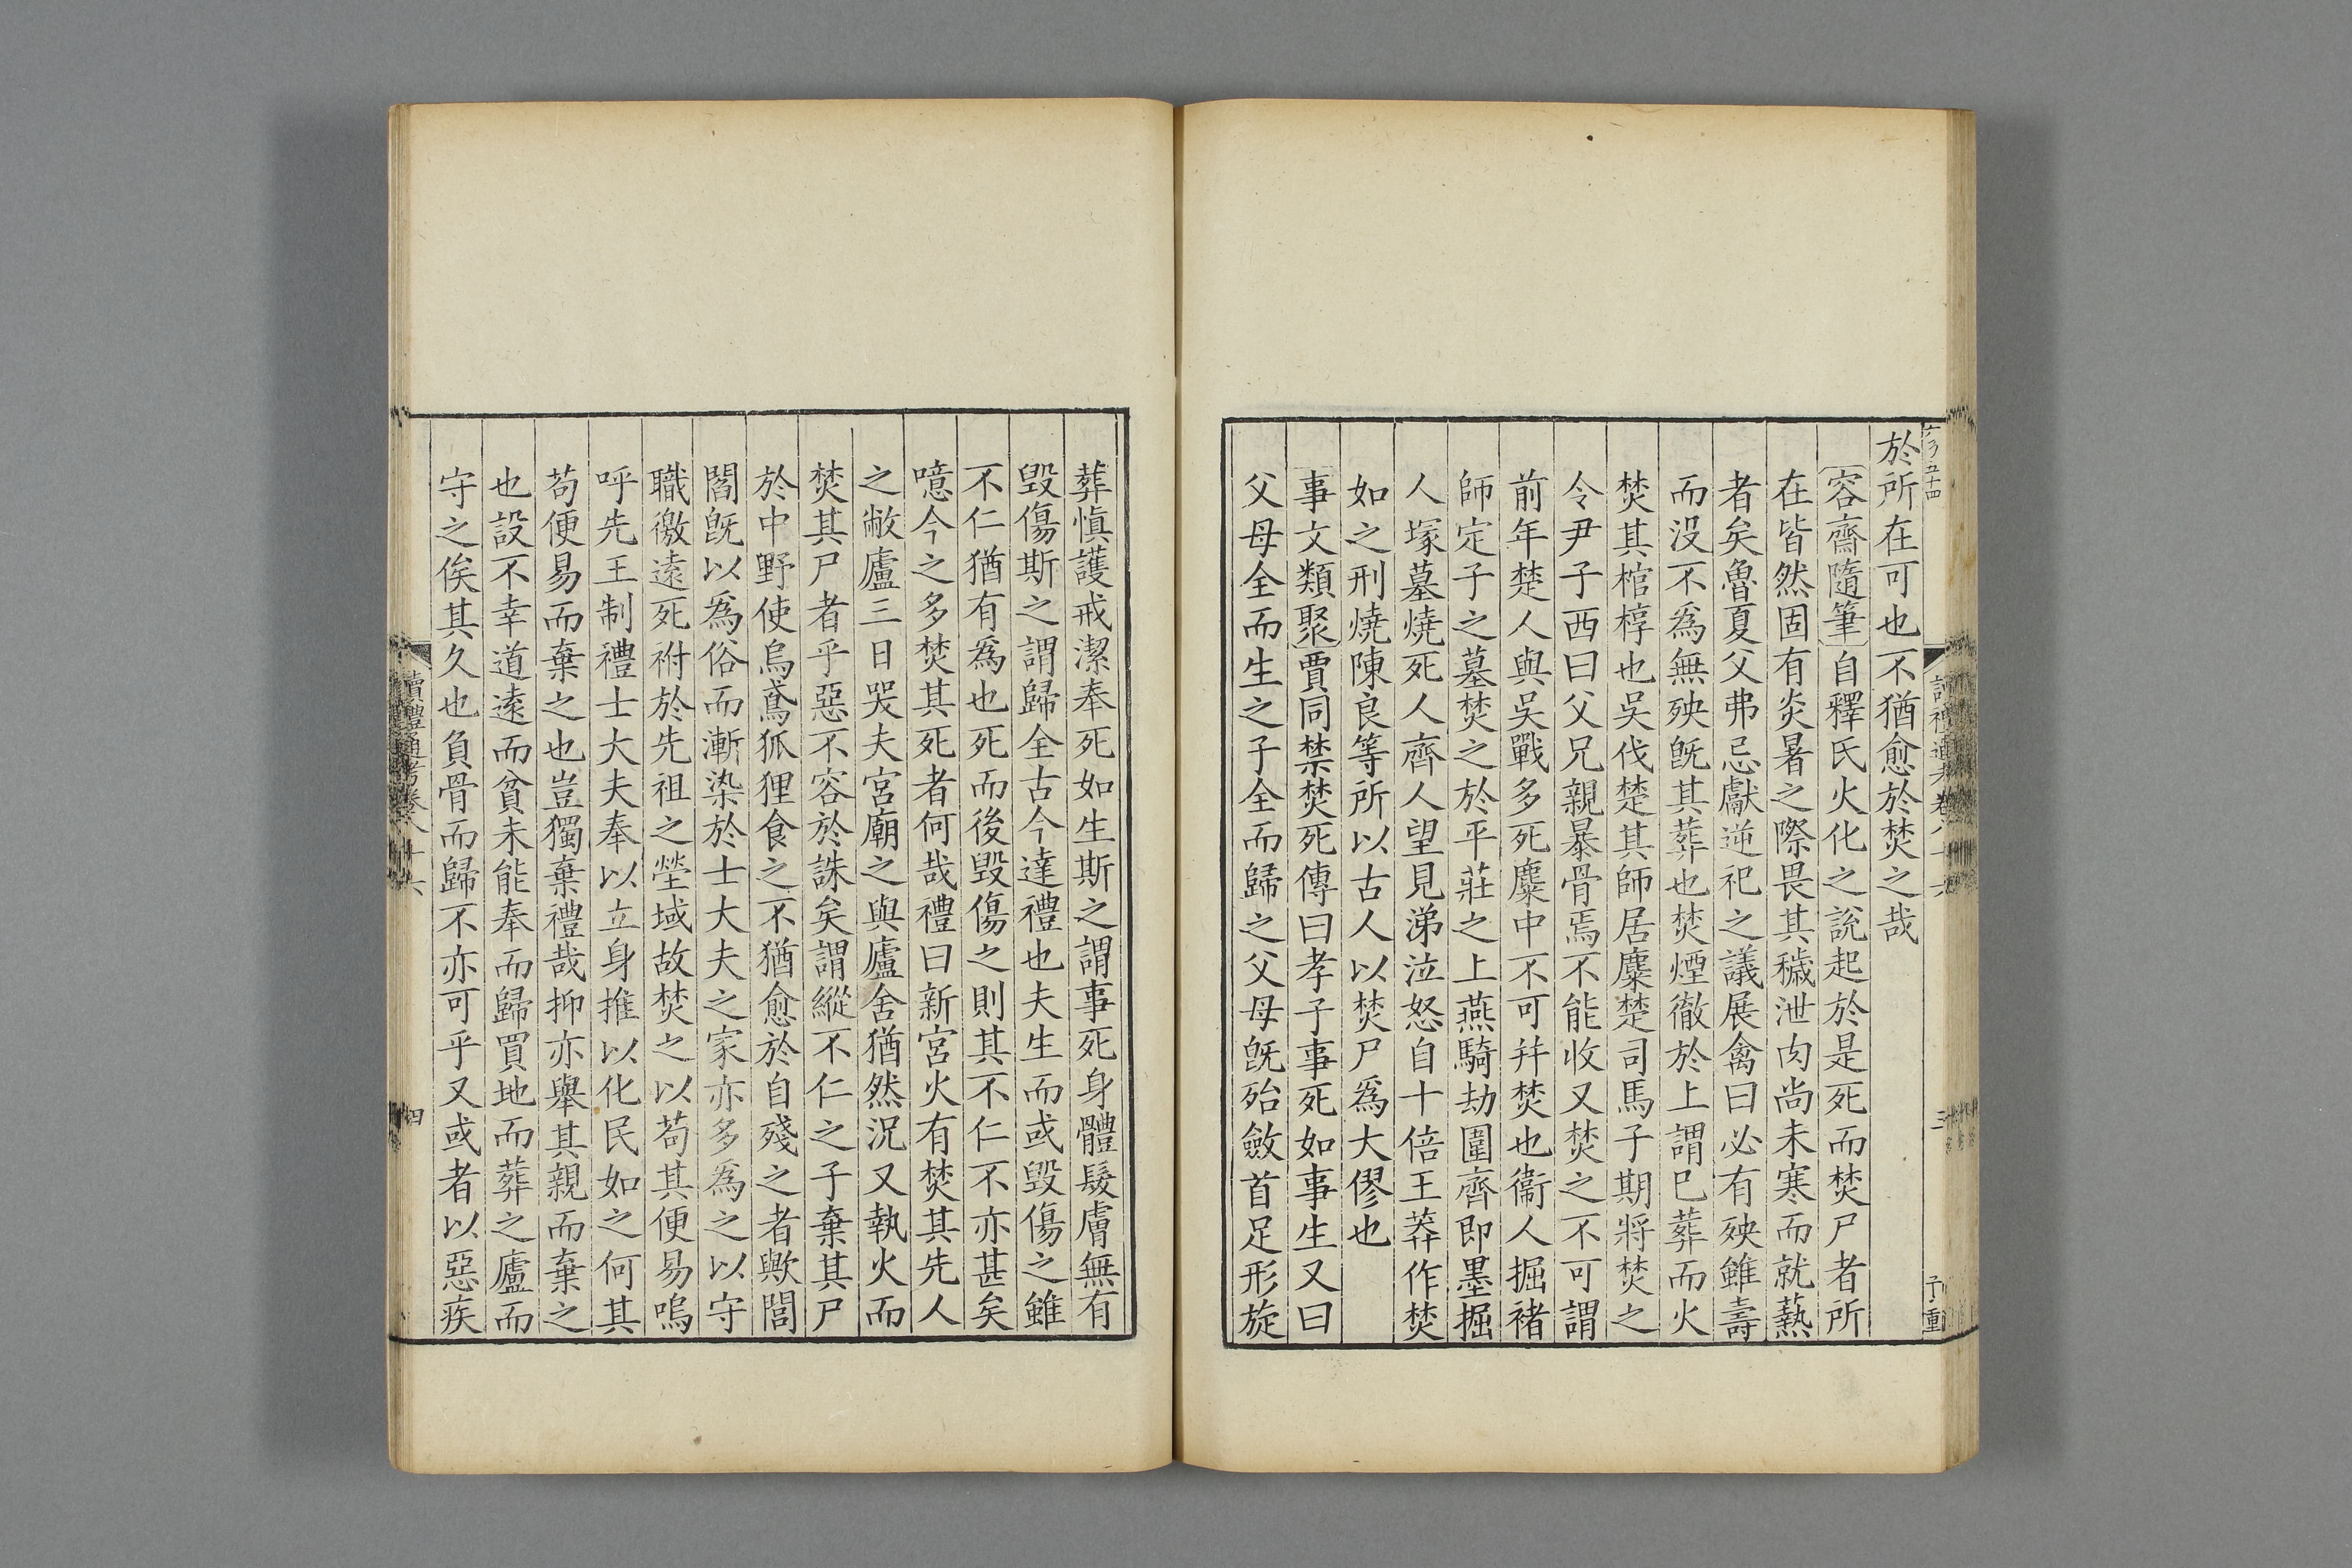 於所在可也不猶愈於焚之哉
容齋隨筆自釋氏火化之說起於是死而焚尸者所
在皆然固有炎暑之際畏其穢泄肉尚未寒而就爇
者矣魯夏父弗忌獻逆祀之議展禽曰必有殃雖壽
而没不爲無殃旣其葬也焚煙徹於上謂巳葬而火
焚其棺椁也吳伐楚其師居麋楚司馬子期將焚之
令尹子西曰父兄親暴骨焉不能收又焚之不可謂
前年楚人與吳戰多死麋中不可并焚也衞人掘褚
師定子之墓焚之於平莊之上燕騎劫圍齊即墨掘
人塚墓燒死人齊人望見涕泣怒自十倍王莽作焚
如之刑燒陳良等所以古人以焚尸爲大僇也
事文類聚賈同禁焚死傳曰孝子事死如事生又曰
父母全而生之子全而歸之父母旣殆斂首足形旋
葬愼護戒潔奉死如生斯之謂事死身體髮膚無有
毀傷斯之謂歸全古今達禮也夫生而或毀傷之雖
不仁猶有爲也死而後毀傷之則其不仁不亦甚矣
噫今之多焚其死者何哉禮曰新宮火有焚其先人
之敝廬三日哭夫宮廟之與廬舍猶然況又執火而
焚其尸者乎惡不容於誅矣謂縱不仁之子棄其尸
於中野使烏鳶狐狸食之不猶愈於自殘之者歟閭
閻旣以爲俗而漸染於士大夫之家亦多爲之以守
職徼遠死祔於先祖之塋域故焚之以苟其便易嗚
呼先王制禮士大夫奉以立身推以化民如之何其
苟便易而棄之也豈獨棄禮哉抑亦舉其親而棄之
也設不幸道遠而貧未能奉而歸買地而葬之廬而
守之俟其久也負骨而歸不亦可乎又或者以惡疾
讀禮通考卷八十六
四